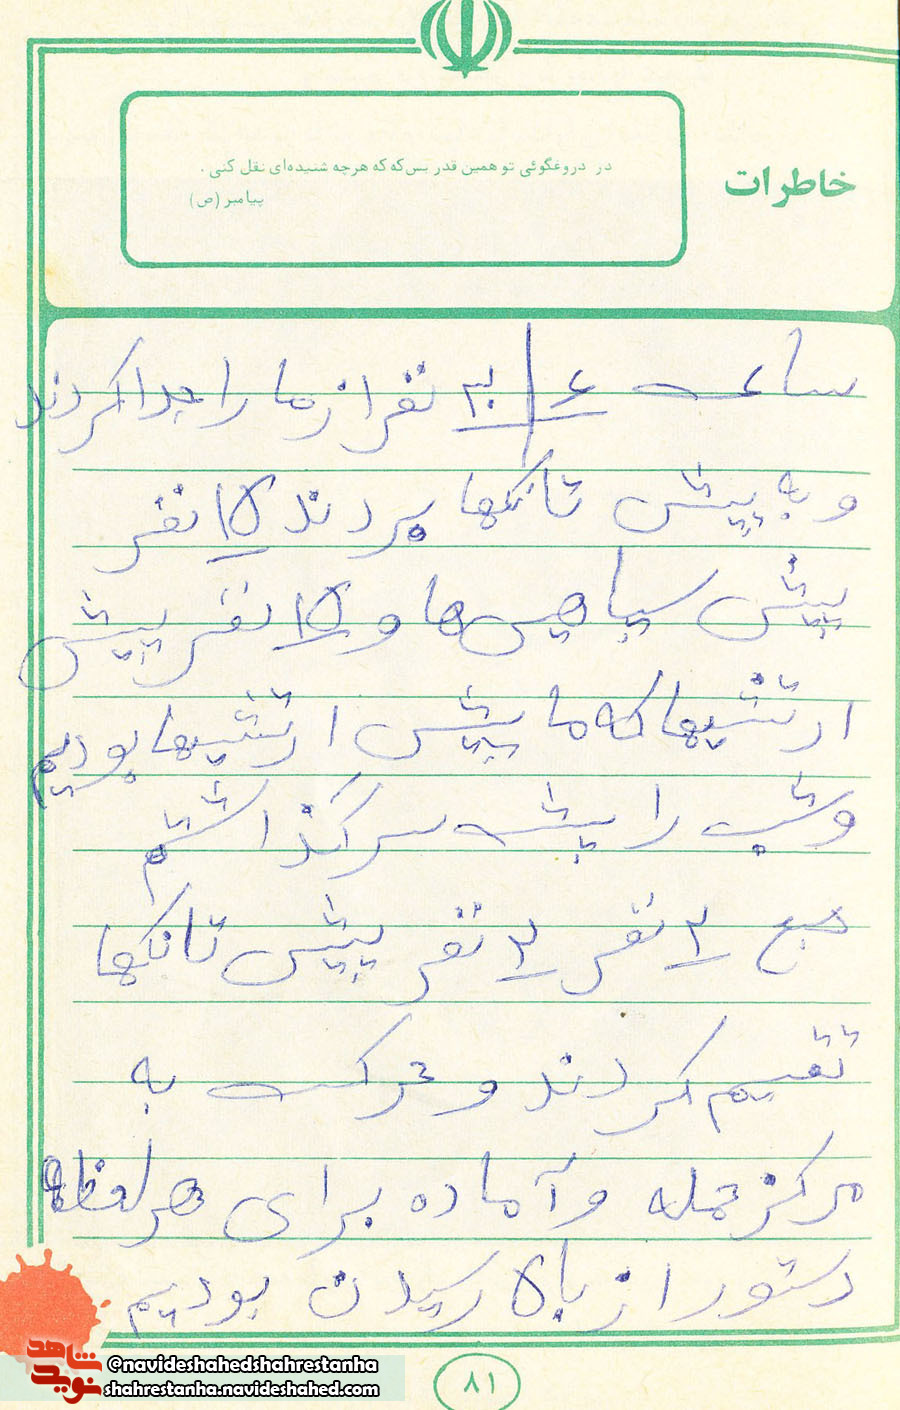 خاطرات
در دروغگوئی تو همین قدر بس که که هرچه شنیده‌ای نقل کنی .
پیامبر (ص)
ساعت ۶ ۳۰ نفر از ما را جدا کردند
و به پیش تانکها بردند ۱۵ نفر
پیش سپاهیی‌ها و ۱۵ نفر پیش
ارتشیها که ما پیش ارتشیها بودیم
و شب را پشت سر گذاشتم
صبح ۲ نفر ۲ نفر پیش تانکها
تقیم کردند و حرکت به
مرکز حمله و آماده برای هر لحظه
دستور از بالا رسیدن بودیم
۸۱
شاهد
نوید
@navideshahedshahrestanha
shahrestanha.navideshahed.com